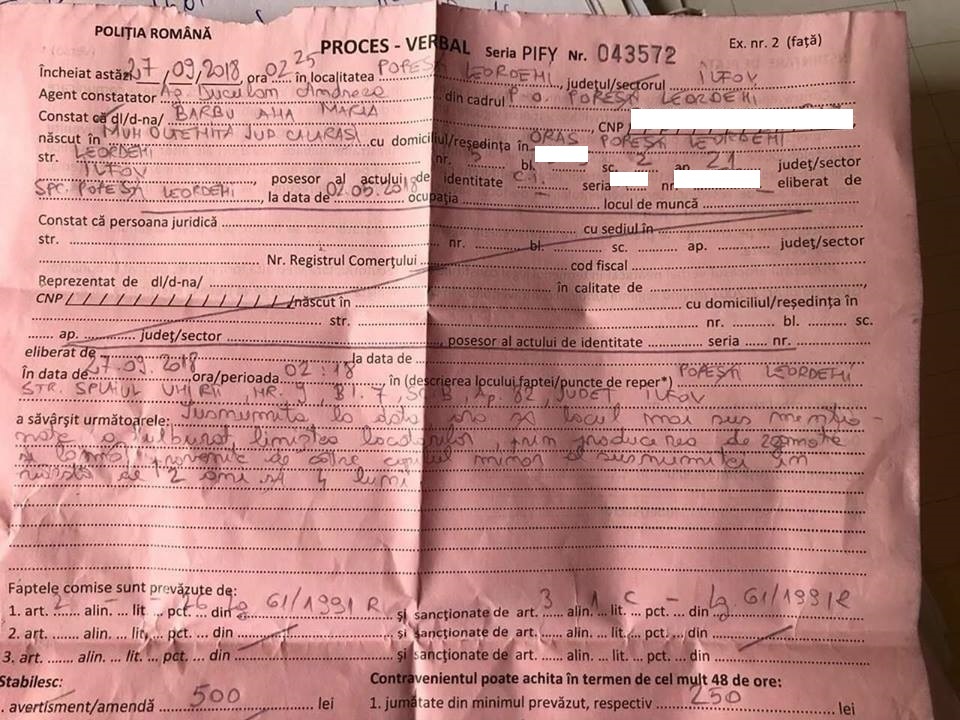 POLIȚIA ROMÂNĂ
PROCES - VERBAL Seria PIFY Nr. 043572 Ex. nr. 2 (față)
Încheiat astăzi 27/09/2018, ora 02 25 în localitatea POPEȘTI LEORDENI, județul/sectorul ILFOV
Agent constatator Ag. Buculan Andreea din cadrul P.O. POPEȘTI LEORDENI
Constat că dl/d-na/ BARBU ANA MARIA, CNP
născut în MUN OLTENITA JUD CALARASI cu domiciliul/reședința în ORAS POPESTI LEORDENI
str. LEORDENI nr. 5 bl. sc. 2 ap. 21 județ/sector
ILFOV, posesor al actului de identitate C.I. seria nr. eliberat de
SPC. POPESTI LEORDENI, la data de 02.05.2018 ocupația locul de muncă
Constat că persoana juridică cu sediul în
str. nr. bl. sc. ap. județ/sector
Nr. Registrul Comerțului cod fiscal
Reprezentat de dl/d-na/ în calitate de
CNP / / / / / / / / / / / / / /născut în cu domiciliul/reședința în
str. nr. bl. sc.
ap. județ/sector, posesor al actului de identitate seria nr.
eliberat de la data de
În data de 27.09.2018, ora/perioada 02:18, în (descrierea locului faptei/puncte de reper*) POPEȘTI LEORDENI
STR. SPLAIUL UNIRII, NR. 9, Bl. 7, SC. B, Ap. 82, JUDET ILFOV
a săvârșit următoarele: Susnumita la data ora și locul mai sus mentio-
nate a tulburat linistea locatarilor prin producerea de zgomote
și larma provenite de către copilul minor al susnumitei în
de 2 ani și 4 luni
Faptele comise sunt prevăzute de:
1. art. 2 alin. - lit. - pct. 26 din Lg 61/1991 R și sancționate de art. 3 alin. 1 lit. c pct. - din Lg 61/1991R
2. art. alin. lit. pct. din și sancționate de art. alin. lit. pct. din
3. art. alin. ... lit. ... pct. ... din și sancționate de art. alin. ... lit. ... pct. ... din
Stabilesc: Contravenientul poate achita în termen de cel mult 48 de ore:
. avertisment/amendă 500 lei 1. jumătate din minimul prevăzut, respectiv 250 lei